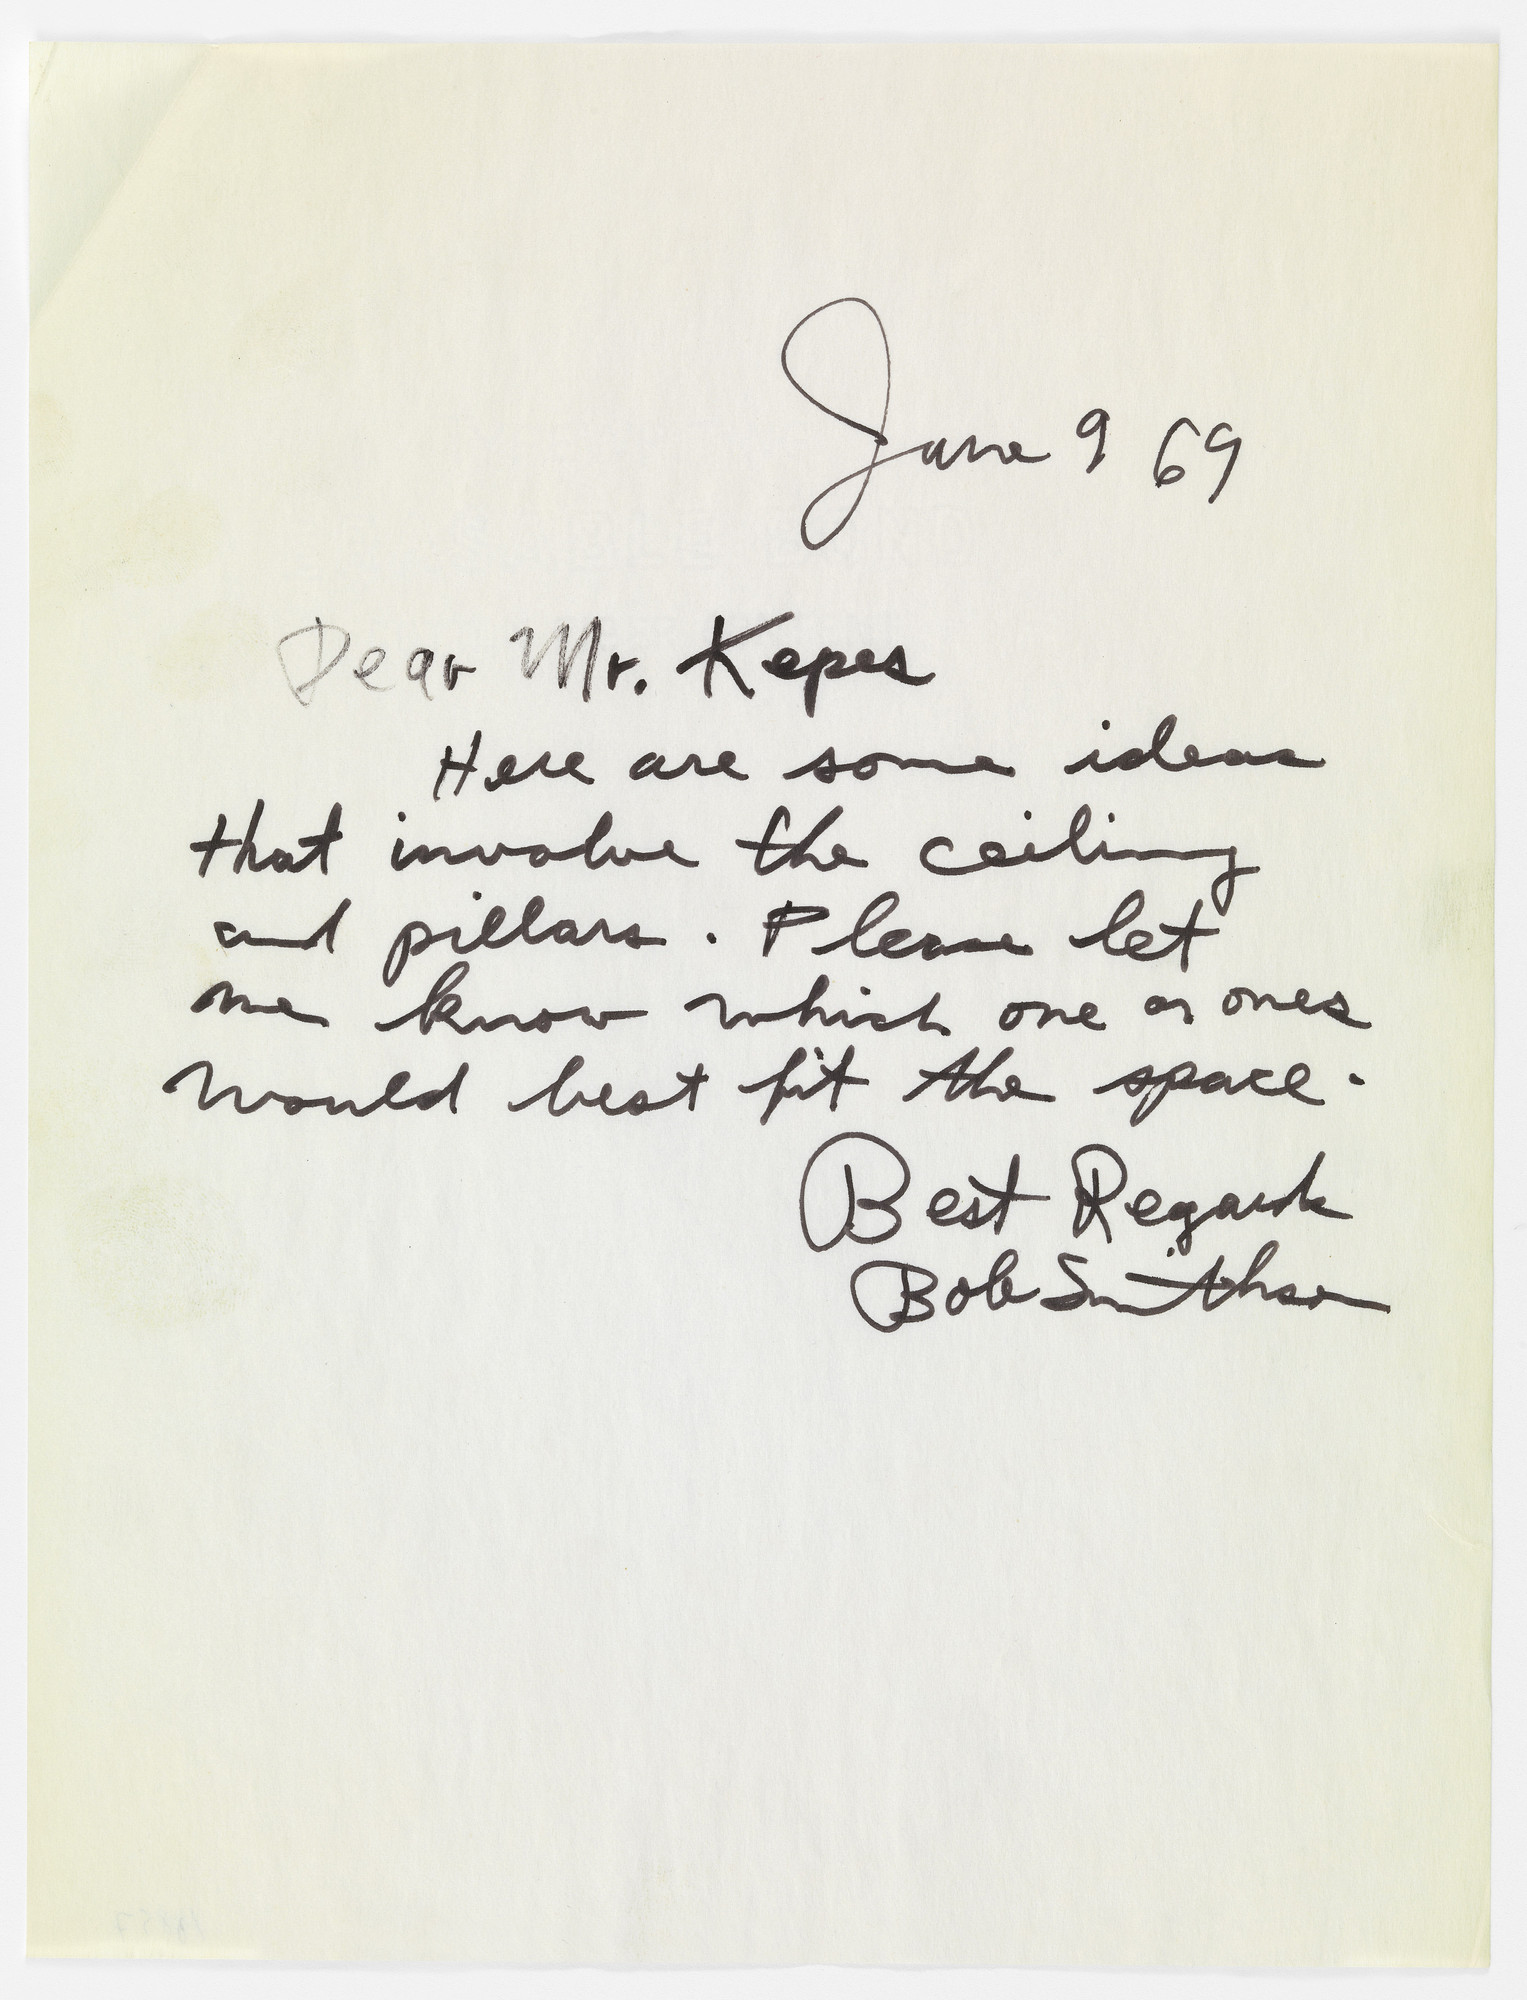 June 9 69
Dear Mr. Kepes
Here are some ideas
that involve the ceiling
and pillars. Please let
me know which one or ones
would best fit the space.
Best Regards
Bob Smithson